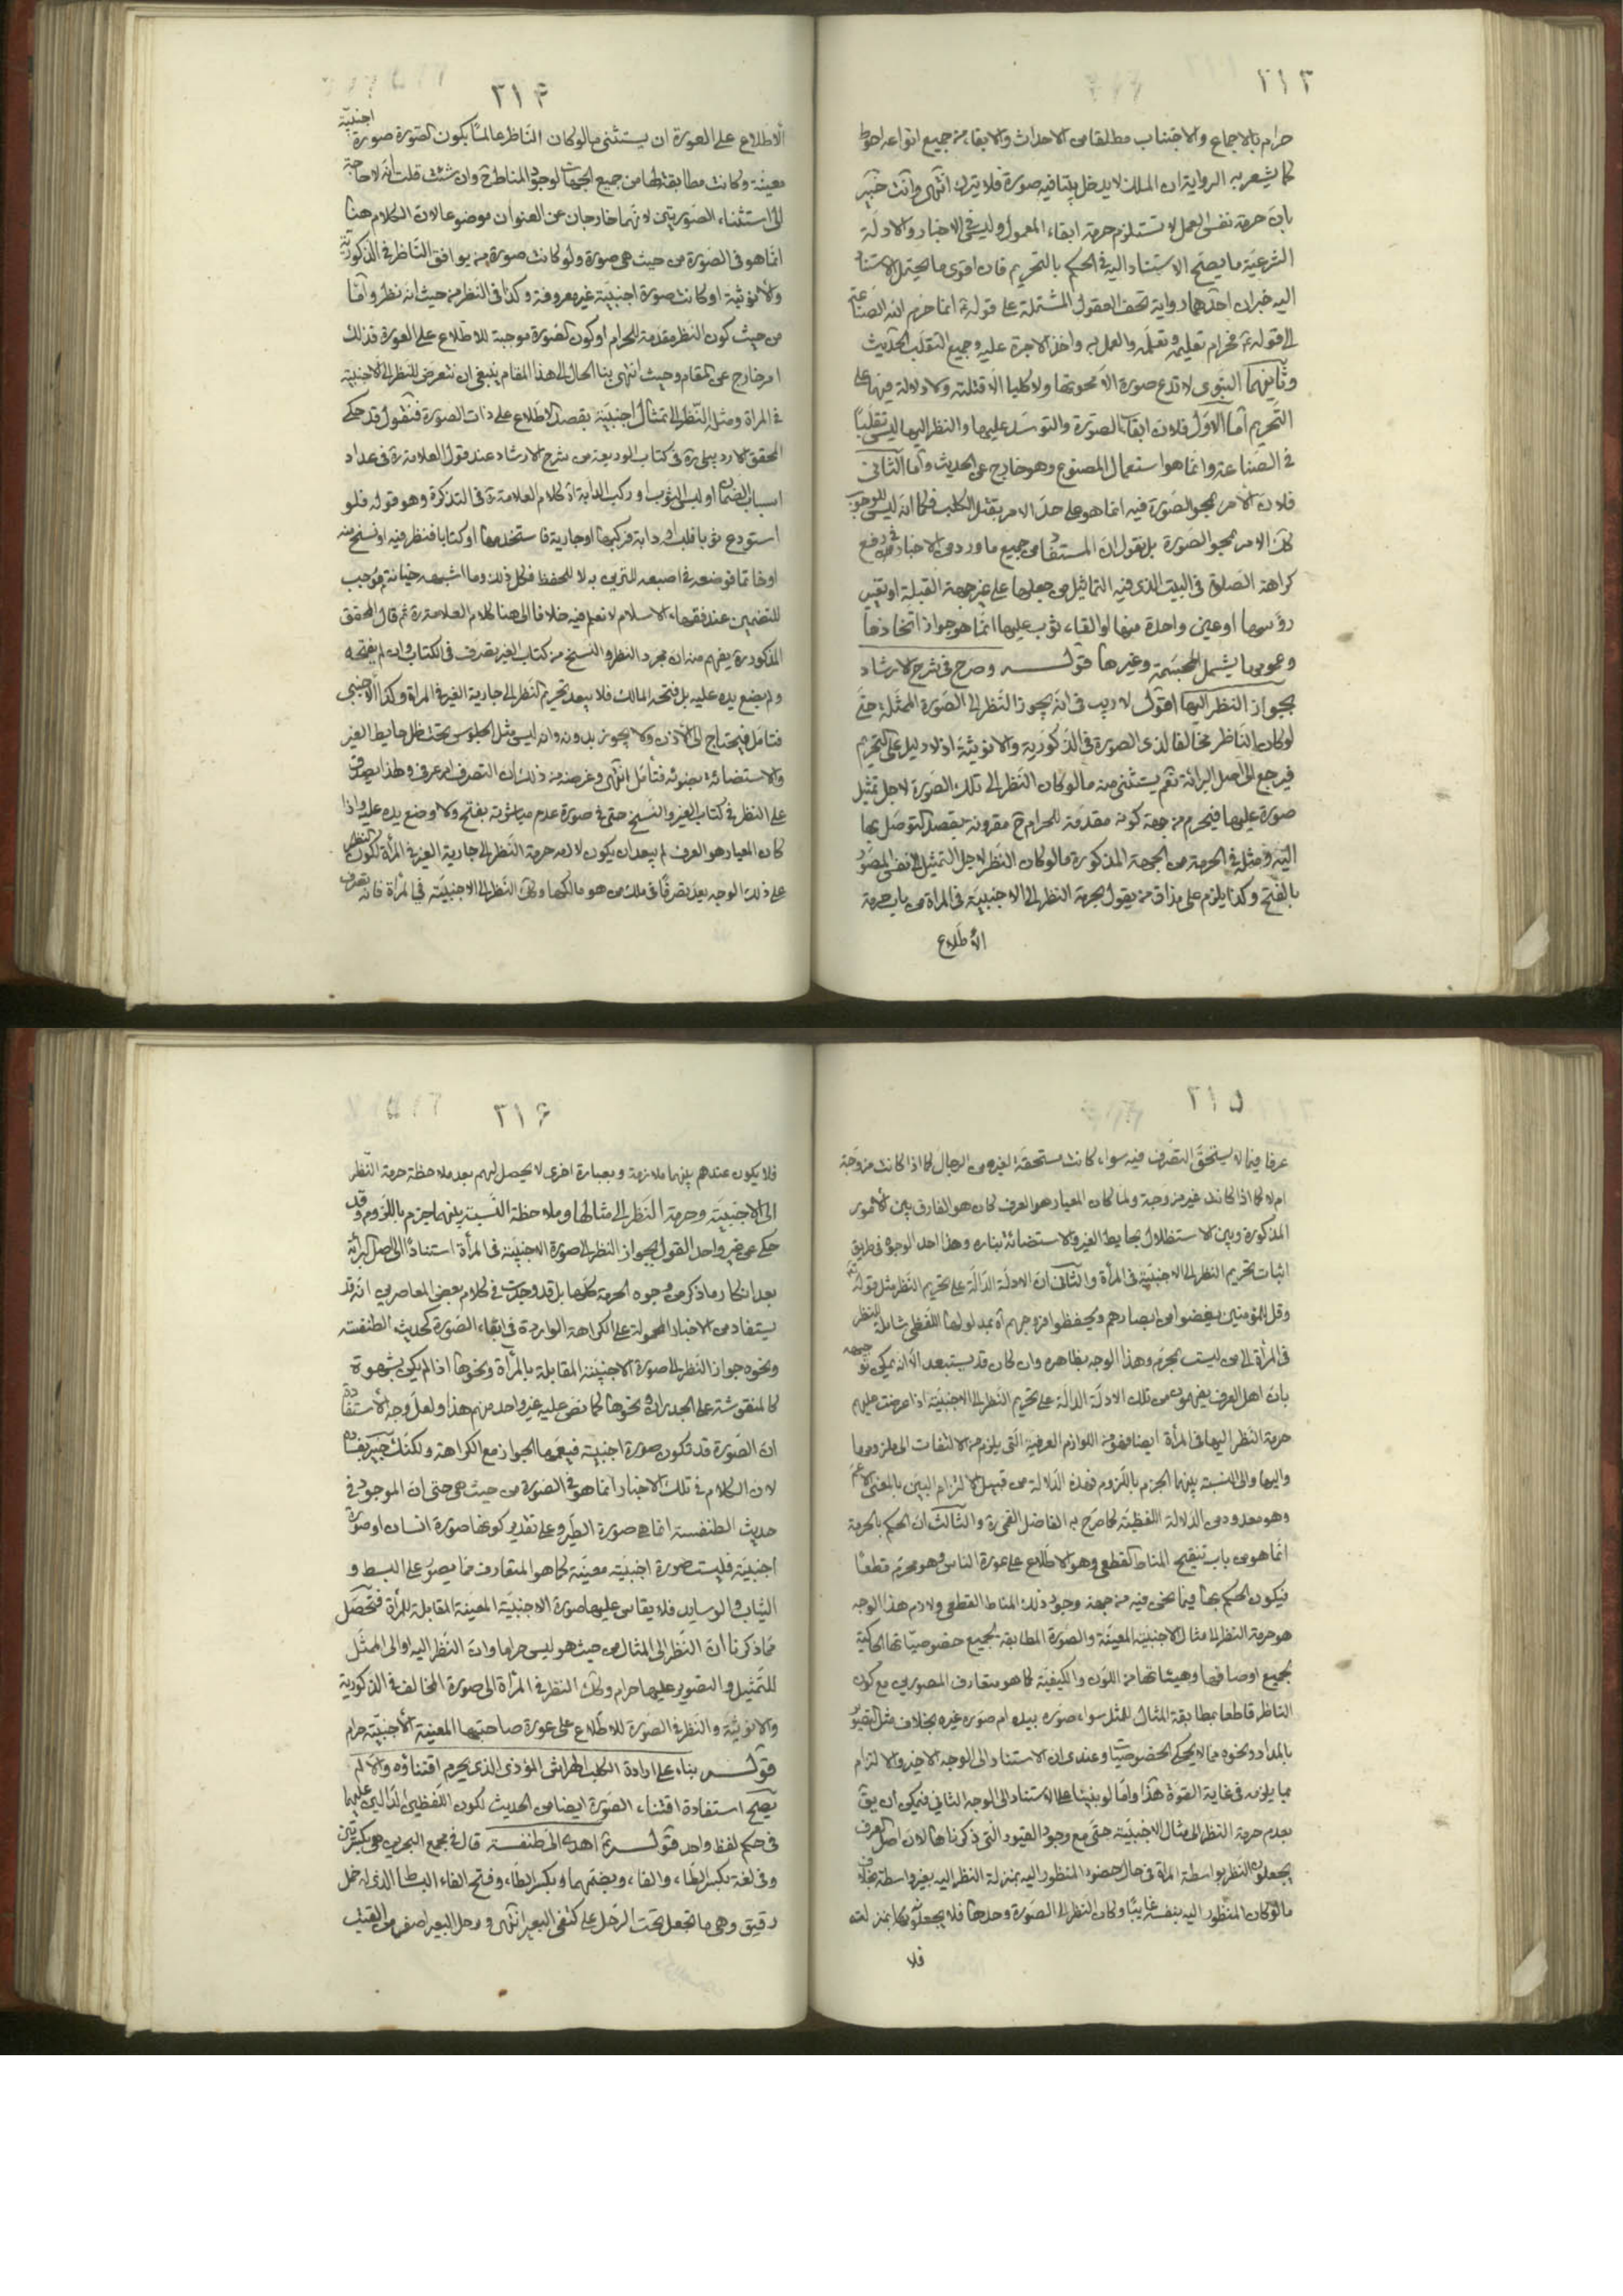 ٣١٣
حرام بالاجماع والاجتناب مطلقا من الاحداث والابقاء من جميع انواعه احوط
كما يشعر به الرواية ان الملك لا يدخل بيتا فيه صورة فلا يترك انتهى وانت خبير
بان حرمة نفس العمل لا تستلزم حرمة ابقاء المعمول وليس فى الاخبار والادلة
الشرعية ما يصح الاستناد اليه فى الحكم بالتحريم فان اقوى ما يحتمل الاستناد
اليه خبران احدهما رواية تحف العقول المشتملة على قوله ع انما حرم الله الصناعة
الى قوله ع فحرام تعليمه وتعلمه والعمل به واخذ الاجرة عليه وجميع التقلب الحديث
وثانيهما النبوى لا تدع صورة الا محوتها ولا كلبا الا قتلته ولا دلالة فيهما على
التحريم اما الاول فلان ابقاء الصورة والتوسد عليها والنظر اليها ليس تقلبا
فى الصناعة وانما هو استعمال المصنوع وهو خارج عن الحديث واما الثانى
فلان الامر بمحو الصورة فيه انما هو على حد الامر بقتل الكلب فكما انه ليس للوجوب
كك الامر بمحو الصورة بل نقول ان المستفاد من جميع ما ورد من الاخبار فى رفع
كراهة الصلوة فى البيت الذى فيه التماثيل من جعلها على غير جهة القبلة او تغيير
رؤسها او عين واحدة منها او القاء ثوب عليها انما هو جواز اتخاذها
وعمومها يشمل المجسمة وغيرها قوله وصرح فى شرح الارشاد
بجواز النظر اليها اقول لا ريب فى انه يجوز النظر الى الصورة الممثلة حتى
لو كان الناظر مخالفا لذى الصورة فى الذكورية والانوثية اذ لا دليل على التحريم
فيرجع الى اصل البرائة نعم يستثنى منه ما لو كان النظر الى تلك الصورة لاجل تمثيل
صورة عليها فيحرم من جهة كونه مقدمة للحرام ح مقرونة بقصد التوصل بها
اليه ومثله فى الحرمة من الجهة المذكورة ما لو كان النظر لاجل التمثيل الى نفس المصور
بالفتح وكذا يلزم على مذاق من يقول بحرمة النظر الى الاجنبية فى المراة من باب حرمة
الاطلاع
٣١۴
الاطلاع على العورة ان يستثنى ما لو كان الناظر عالما بكون الصورة صورة اجنبية
معينة وكانت مطابقة لها من جميع الجهات لوجود المناط ح وان شئت قلت انه لا حاجة
الى استثناء الصورتين لانهما خارجان عن العنوان موضوعا لان الكلام هنا
انما هو فى الصورة من حيث هى صورة ولو كانت صورة من يوافق الناظر فى الذكورية
والانوثية او كانت صورة اجنبية غير معروفة وكذا فى النظر من حيث انه نظر واما
من حيث كون النظر مقدمة للحرام او كون الصورة موجبة للاطلاع على العورة فذلك
امر خارج عن المقام وحيث انتهى بنا الحال الى هذا المقام ينبغى ان نتعرض للنظر الى الاجنبية
فى المراة ومثله النظر الى تمثال اجنبية بقصد الاطلاع على ذات الصورة فنقول قد حكى
المحقق الاردبيلى ره فى كتاب الوديعة من شرح الارشاد عند قول العلامة ره فى عداد
اسباب الضمان او لبس الثوب او ركب الدابة اه كلام العلامة ره فى التذكرة وهو قوله فلو
استودع ثوبا فلبسه او دابة فركبها او جارية فاستخدمها او كتابا فنظر فيه او نسخ منه
او خاتما فوضعه فى اصبعه للتزين به لا للحفظ فكل ذلك وما اشبهه خيانة موجب
للتضمين عند فقهاء الاسلام لا نعلم فيه خلافا الى هنا كلام العلامة ره ثم قال المحقق
المذكور ره يفهم منه ان مجرد النظر والنسخ من كتاب الغير تصرف فى الكتاب وان لم يفتحه
ولم يضع يده عليه بل فتحه المالك فلا يبعد تحريم النظر الى جارية الغير فى المراة وكذا الاجنبى
فتامل فيحتاج الى الاذن ولا يجوز بدونه وانه ليس مثل الجلوس تحت ظل حايط الغير
والاستضائة بضوئه فتامل انتهى وغرضه من ذلك ان التصرف امر عرفى ولهذا يصدق
على النظر فى كتاب الغير والنسخ حتى فى صورة عدم مباشرته بفتحه ولا وضع يده عليه واذا
كان المعيار هو العرف لم يبعد ان يكون لازمه حرمة النظر الى جارية الغير فى المرأة لكون النظر
على ذلك الوجه يعد تصرفا فى ملك من هو مالكها وكك النظر الى الاجنبية فى المراة فانه تصرف
٣١۵
عرفا فيما لا يستحق التصرف فيه سواء كانت مستحقة لغيره من الرجال كما اذا كانت مزوجة
ام لا كما اذا كانت غير مزوجة ولما كان المعيار هو العرف كان هو الفارق بين الامور
المذكورة وبين الاستظلال بحايط الغير والاستضائة بناره وهذا احد الوجوه فى طريق
اثبات تحريم النظر الى الاجنبية فى المرأة والثانى ان الادلة الدالة على تحريم النظر مثل قوله تع
وقل للمؤمنين يغضوا من ابصارهم ويحفظوا فروجهم اه بمدلولها اللفظى شاملة للنظر
فى المرأة الى من ليست بمحرم وهذا الوجه بظاهره وان كان قد يستبعد الا انه يمكن توجيهه
بان اهل العرف يفهمون من تلك الادلة الدالة على تحريم النظر الى الاجنبية اذا عرضت عليهم
حرمة النظر اليها فى المرأة ايضا فهو من اللوازم العرفية التى يلزم من الالتفات الى ملزومها
واليها والى النسبة بينهما الجزم باللزوم فهذه الدلالة من قبيل الالتزام البين بالمعنى الاعم
وهو معدود من الدلالة اللفظية كما صرح به الفاضل القمى ره والثالث ان الحكم بالحرمة
انما هو من باب تنقيح المناط القطعى وهو الاطلاع على عورة الناس وهو محرم قطعا
فيكون الحكم بها فيما نحن فيه من جهة وجود ذلك المناط القطعى ولازم هذا الوجه
هو حرمة النظر الى مثال الاجنبية المعينة والصورة المطابقة لجميع خصوصياتها الحاكية
لجميع اوصافها وهيئاتها من اللون والكيفية كما هو متعارف المصورين مع كون
الناظر قاطعا بمطابقة المثال للمثل سواء صوره بيده ام صوره غيره بخلاف مثل التصوير
بالمداد ونحوه مما لا يحكى الخصوصيات وعندى ان الاستناد الى الوجه الاخير والالتزام
بما يلزمه فى غاية القوة هذا واما لو بنينا على الاستناد الى الوجه الثانى فيمكن ان يق
بعدم حرمة النظر الى مثال الاجنبية حتى مع وجود القيود التى ذكرناها لان اهل العرف
يجعلون النظر بواسطة المراة فى حال حضور المنظور اليه بمنزلة النظر اليه بغير واسطة بخلاف
ما لو كان المنظور اليه بنفسه غايبا وكان النظر الى الصورة وحدها فلا يجعلونها بمنزلته
فلا
٣١۶
فلا يكون عندهم بينهما ملازمة وبعبارة اخرى لا يحصل لهم بعد ملاحظة حرمة النظر
الى الاجنبية وحرمة النظر الى مثالها وملاحظة النسبة بينهما جزم باللزوم وقد
حكى عن غير واحد القول بجواز النظر الى صورة الاجنبية فى المرأة استنادا الى اصل البرائة
بعد انكار ما ذكر من وجوه الحرمة كلها بل قد وجدت فى كلام بعض المعاصرين انه قد
يستفاد من الاخبار المحمولة على الكراهة الواردة فى ابقاء الصورة كحديث الطنفسة
ونحوه جواز النظر الى صورة الاجنبية المقابلة بالمرأة ونحوها اذا لم يكن بشهوة
كالمنقوشة على الجدران ونحوها كما نص عليه غير واحد منهم هذا ولعل وجه الاستفادة
ان الصورة قد تكون صورة اجنبية فيعمها الجواز مع الكراهة ولكنك خبير بفساده
لان الكلام فى تلك الاخبار انما هو فى الصورة من حيث هى حتى ان الموجود فى
حديث الطنفسة انما هى صورة الطير وعلى تقدير كونها صورة انسان او صورة
اجنبية فليست صورة اجنبية معينة كما هو المتعارف مما يصور على البسط و
الثياب والوسايد فلا يقاس عليها صورة الاجنبية المعينة المقابلة للمرأة فتحصل
مما ذكرنا ان النظر الى المثال من حيث هو ليس حراما وان النظر اليه او الى الممثل
للتمثيل والتصوير عليها حرام وكك النظر فى المرأة الى صورة المخالف فى الذكورية
والانوثية والنظر فى الصورة للاطلاع على عورة صاحبتها المعينة الاجنبية حرام
قوله بناء على ارادة الكلب الهراش المؤذى الذى يحرم اقتناؤه والا لم
يصح استفادة اقتناء الصورة ايضا من الحديث لكون اللفظين الدالين عليهما
فى حكم لفظ واحد قوله ثم اهدى الى طنفسة قال فى مجمع البحرين هى بكسرتين
وفى لغة بكسر الطاء والفاء وبضمهما وبكسر الطاء وفتح الفاء البساط الذى له خمل
رقيق وهى ما تجعل تحت الرحل على كتفى البعير انتهى و رحل البعير اصغر من القتب